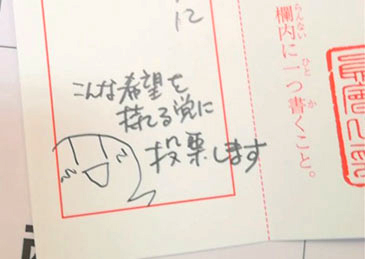 に
こんな希望を
持れる党に
投票します
欄内に一つ書くこと。
らんない ひと か